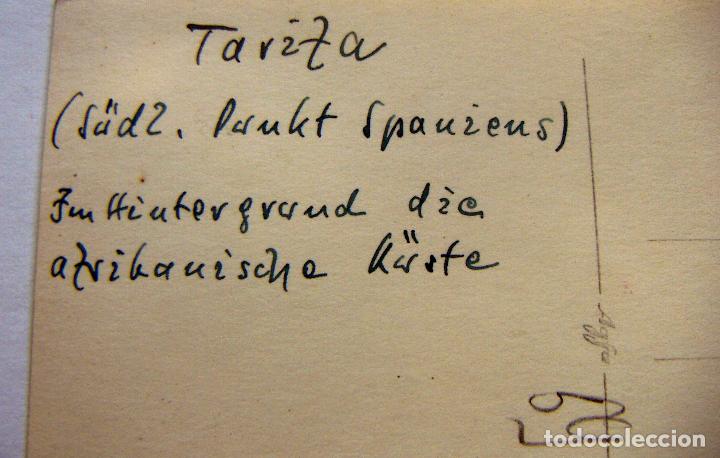 Tarifa
(Südl. Punkt Spaniens)
Im Hintergrund die
afrikanische Küste
Agfa
59
todocoleccion